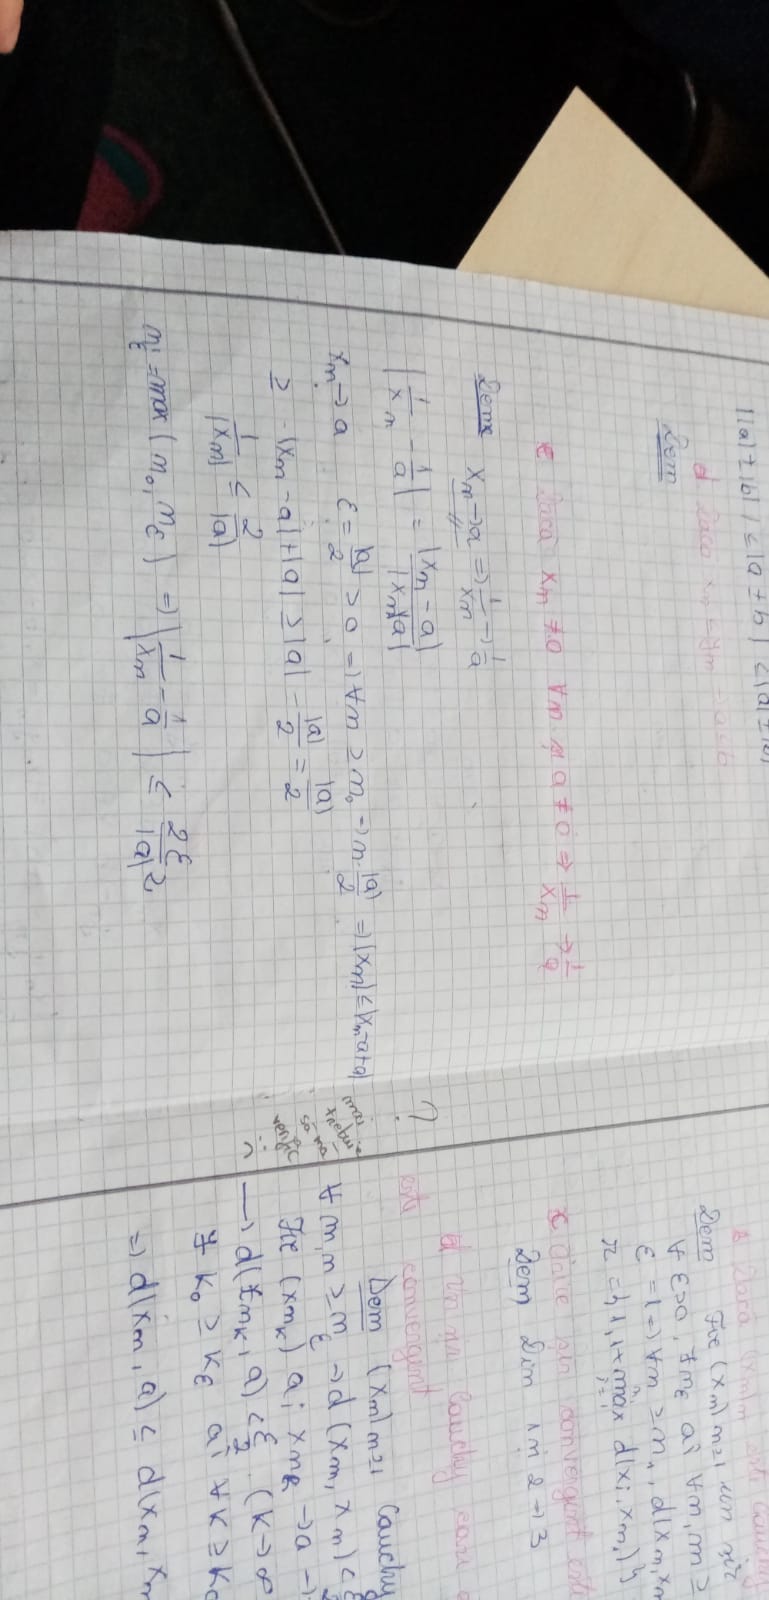 ||a| ± |b| ≤ |a ± b| ≤ ||b| + |a||
d Dacă xn ≤ yn → a ≤ b
Dem
e Dacă xn ≠ 0 ∀n și a ≠ 0 ⇒ 1/xn → 1/a
Dem xn → a ⇒ 1/xn → 1/a
|1/xn - 1/a| = |xn - a| / |xn||a|
xn → a ε = |a|/2 > 0 ⇒ ∀n ≥ n0 |a|/2 ⇒ |xn| ≤ |xn - a + a|
≥ -|xn - a| + |a| ≥ |a| - |a|/2 = |a|/2
1/|xn| ≤ 2/|a|
= max(n0, nε) ⇒ |1/xn - 1/a| ≤ 2ε/|a|²
?
mai
trebuie
să mă
verific
:(
Dacă (xn)n este Cauchy
Dem Fie (xn) n≥1 un șir
∀ ε>0, ∃ nε aî ∀n, m ≥
ε = 1 ⇒ ∀n ≥ n1, d(xn, xn
r = {1, 1 + max i=1 d(xi, xn1)}
c Orice șir convergent este
Dem Din 1 și 2 → 3
d Un șir Cauchy care
este convergent
Dem (xn) n≥1 Cauchy
∀ m, n ≥ nε → d(xm, xn) < ε/2
Fie (xnk) aî xnk → a →
→ d(xnk, a) < ε/2 (k → ∞
∃ k0 ≥ kε aî ∀k ≥ k0
⇒ d(xn, a) ≤ d(xn, xn